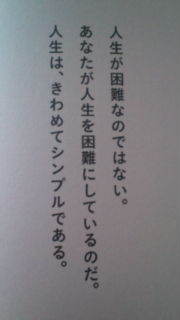 人生が困難なのではない。
あなたが人生を困難にしているのだ。
人生は、きわめてシンプルである。